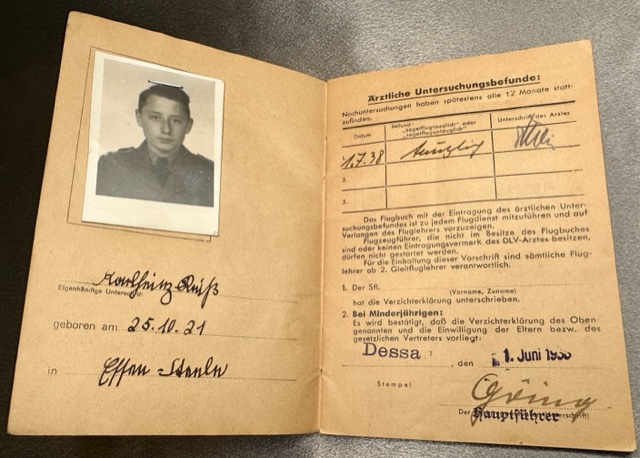 Karlheinz Reiß
Eigenhändige Unterschr.
geboren am 25.10.21
in Essen-Steele
Ärztliche Untersuchungsbefunde:
Nachuntersuchungen haben spätestens alle 12 Monate statt-
zufinden.
Datum
Befund:
„segelflugtauglich" oder
„segelfluguntauglich"
Unterschrift des Arztes
1.7.38 tauglich
2.
3.
Das Flugbuch mit der Eintragung des ärztlichen Unter-
suchungsbefundes ist zu jedem Flugdienst mitzuführen und auf
Verlangen des Fluglehrers vorzuzeigen.
Flugzeugführer, die nicht im Besitze des Flugbuches
sind oder keinen Eintragungsvermerk des DLV-Arztes besitzen,
dürfen nicht gestartet werden.
Für die Einhaltung dieser Vorschrift sind sämtliche Flug-
lehrer ab 2. Gleitfluglehrer verantwortlich.
1. Der Sfl.
(Vorname, Zuname)
hat die Verzichterklärung unterschrieben.
2. Bei Minderjährigen:
Es wird bestätigt, daß die Verzichterklärung des Oben-
genannten und die Einwilligung der Eltern bezw. des
gesetzlichen Vertreters vorliegt:
Dessa, den 1. Juni
Stempel
Göring
Der
Hauptführer